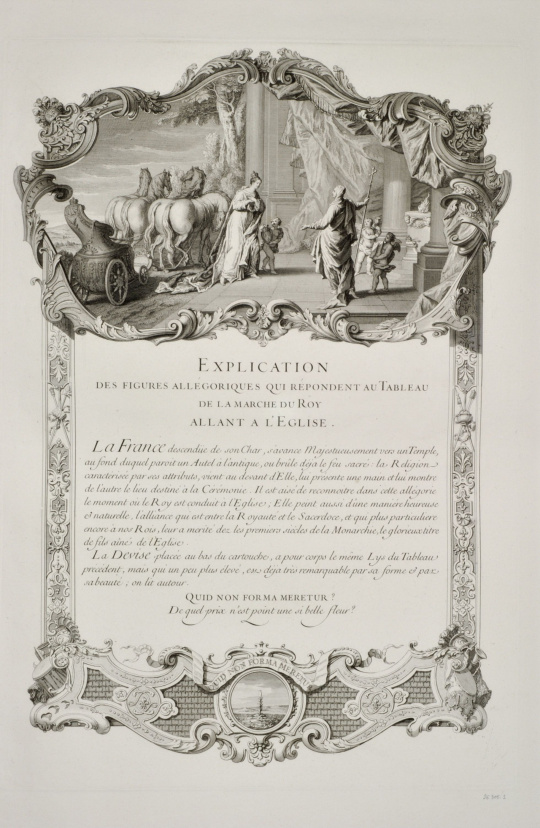 EXPLICATION
DES FIGURES ALLEGORIQUES QUI REPONDENT AU TABLEAU
DE LA MARCHE DU ROY
ALLANT A L'EGLISE.
La France descendue de son Char, s'avance Majestueusement vers un Temple,
au fond duquel paroit un Autel à l'antique, ou brûle deja le feu sacré: la Religion
caracterisée par ses attributs, vient au devant d'Elle, lui presente une main et lui montre
de l'autre le lieu destiné à la Cérémonie. Il est aisé de reconnoitre dans cette allégorie
le moment où le Roy est conduit à l'Eglise; Elle peint aussi d'une maniere heureuse
& naturelle, l'alliance qui est entre la Royauté et le Sacerdoce, et qui plus particuliere
encore a nos Rois, leur a merité dez les premiers siécles de la Monarchie, le glorieux titre
de fils ainés de l'Eglise.
La Devise placée au bas du cartouche, a pour corps le même Lys du Tableau
precedent, mais qui un peu plus elevé, est deja très remarquable par sa forme & par
sa beauté; on lit autour
QUID NON FORMA MERETUR?
De quel prix n'est point une si belle fleur?
QUID NON FORMA MERETUR